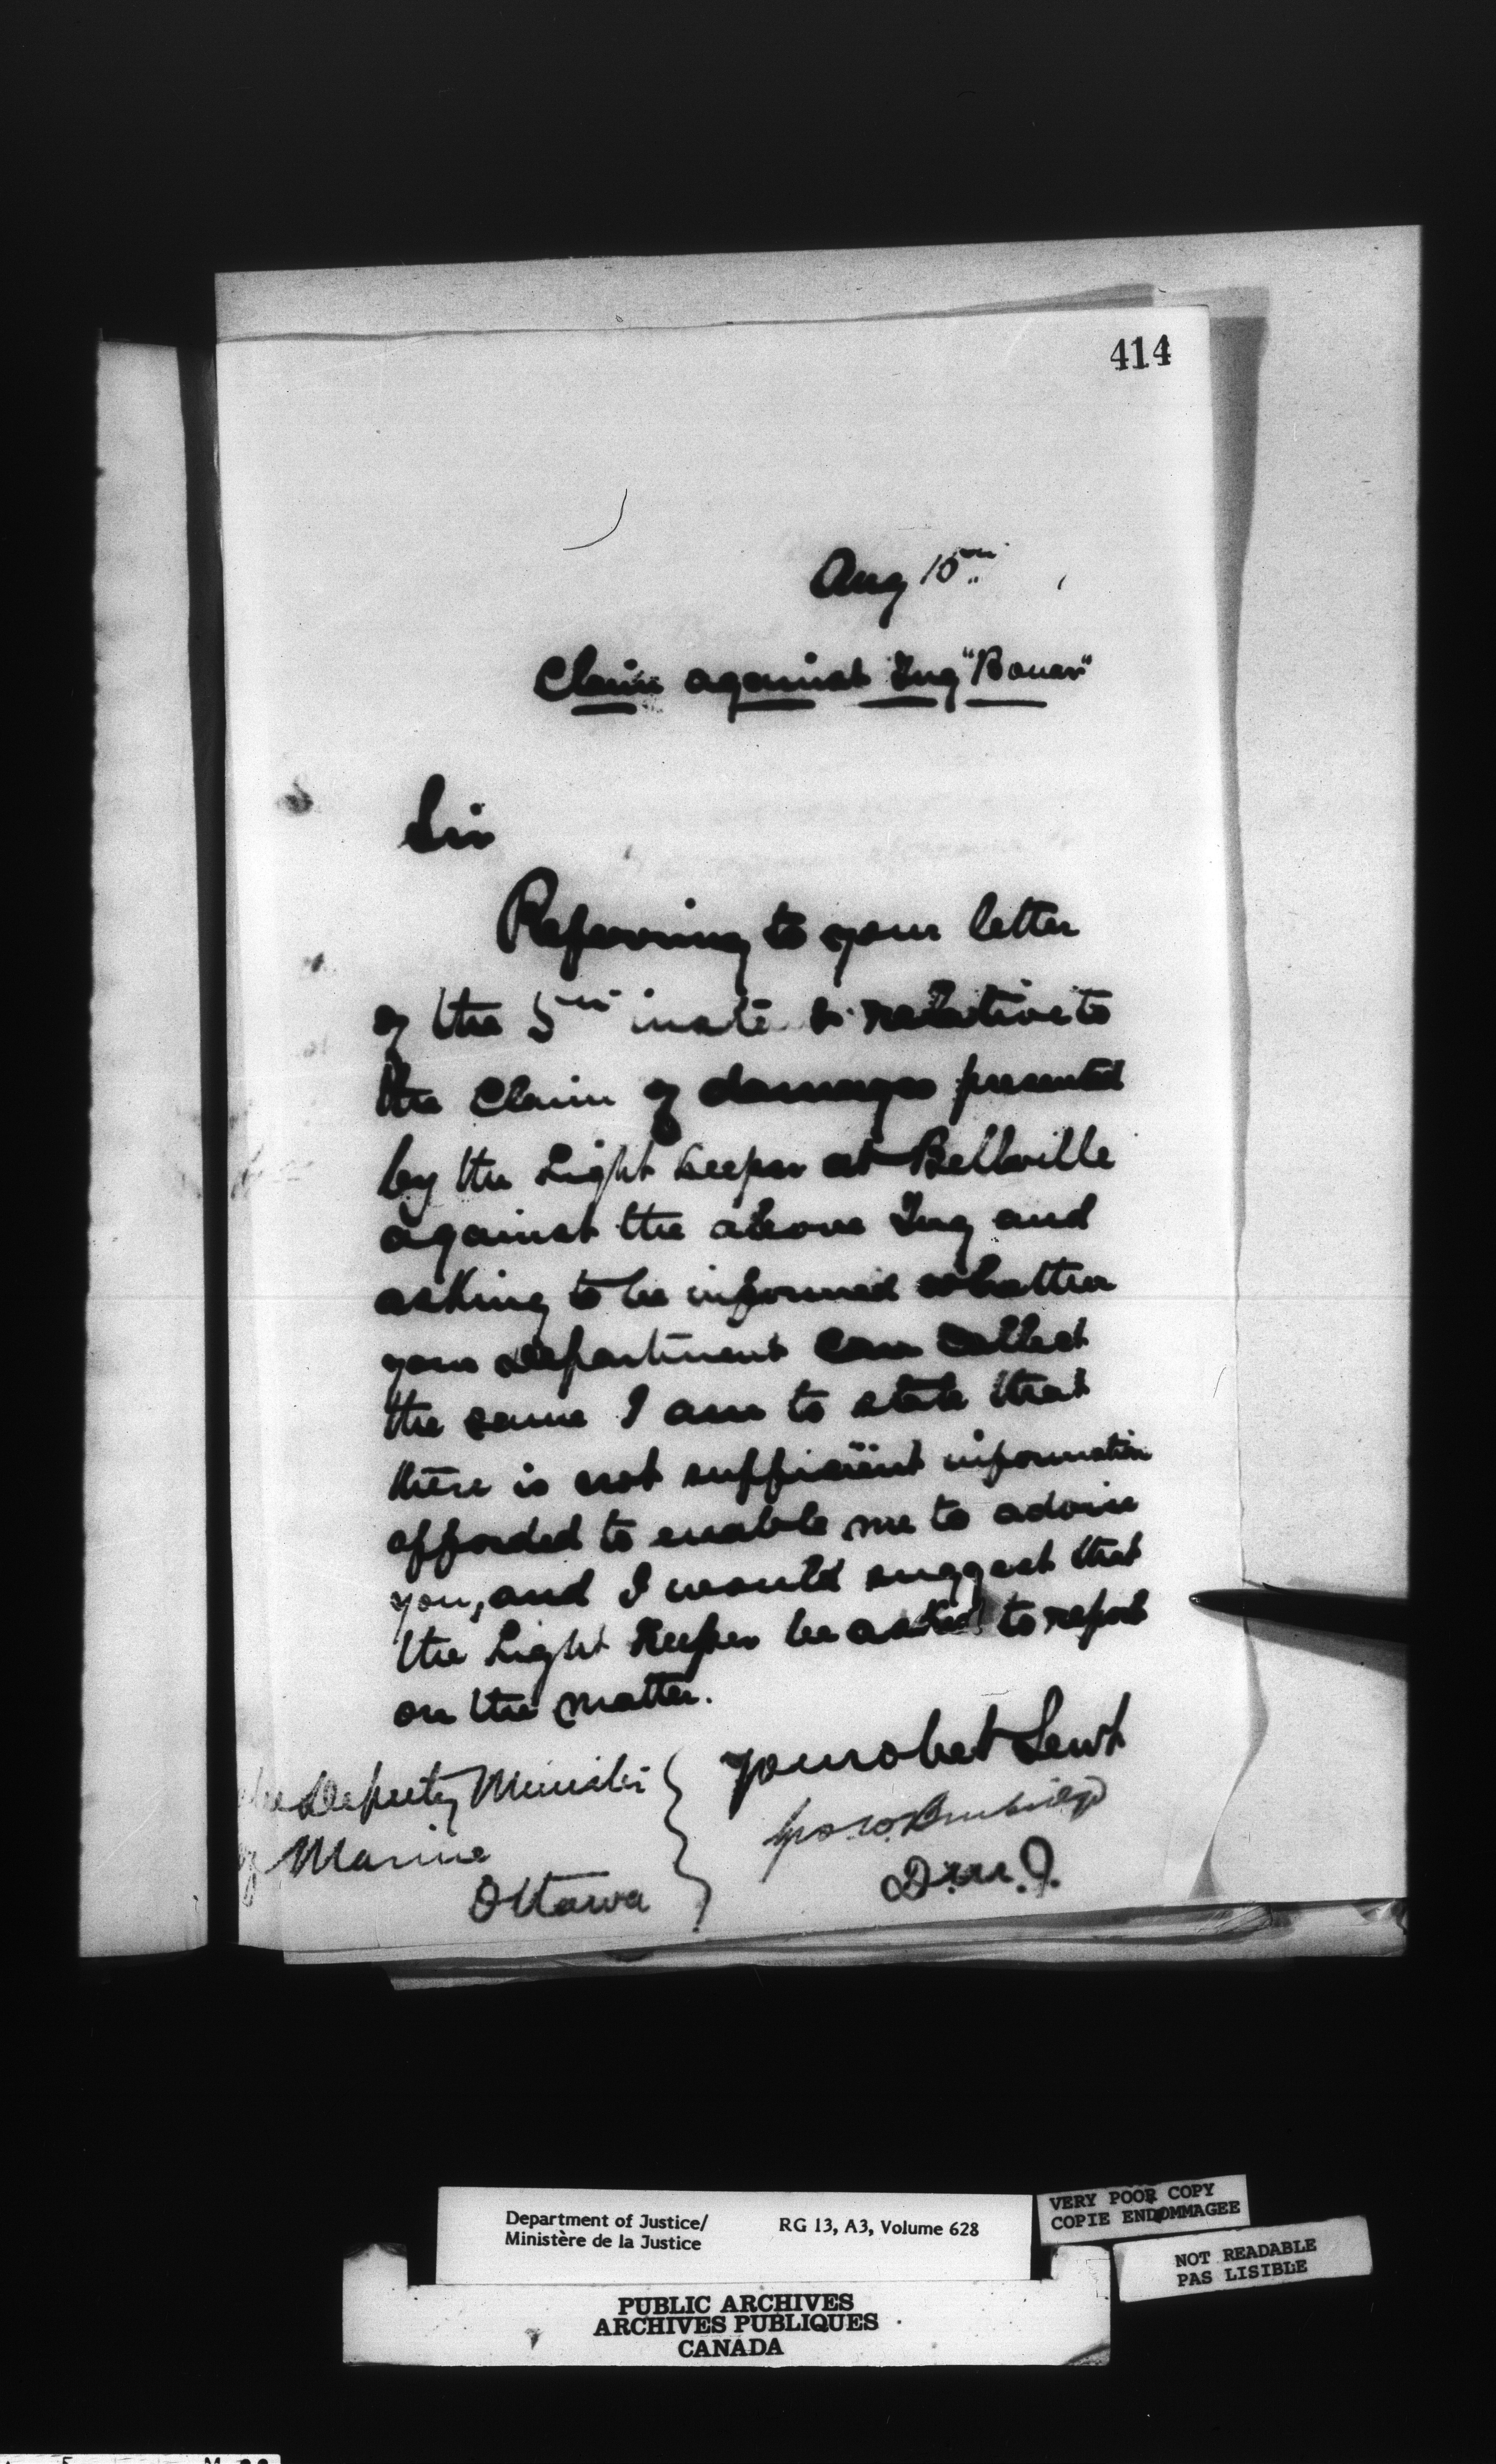 414
Aug 15th
Claim against Tug "Bauer"
Sir
Referring to your letter
of the 5th inst. & relative to
the Claim of damages presented
by the Light Keeper at Bellville
against the above Tug and
asking to be informed whether
your Department can collect
the same I am to state that
there is not sufficient information
afforded to enable me to advise
you, and I would suggest that
the Light Keeper be asked to report
on the matter.
Your obet Servt
Geo W. Burbidge
D.M.J.
The Deputy Minister
of Marine
Ottawa
Department of Justice/
Ministère de la Justice
RG 13, A3, Volume 628
VERY POOR COPY
COPIE ENDOMMAGEE
NOT READABLE
PAS LISIBLE
PUBLIC ARCHIVES
ARCHIVES PUBLIQUES
CANADA